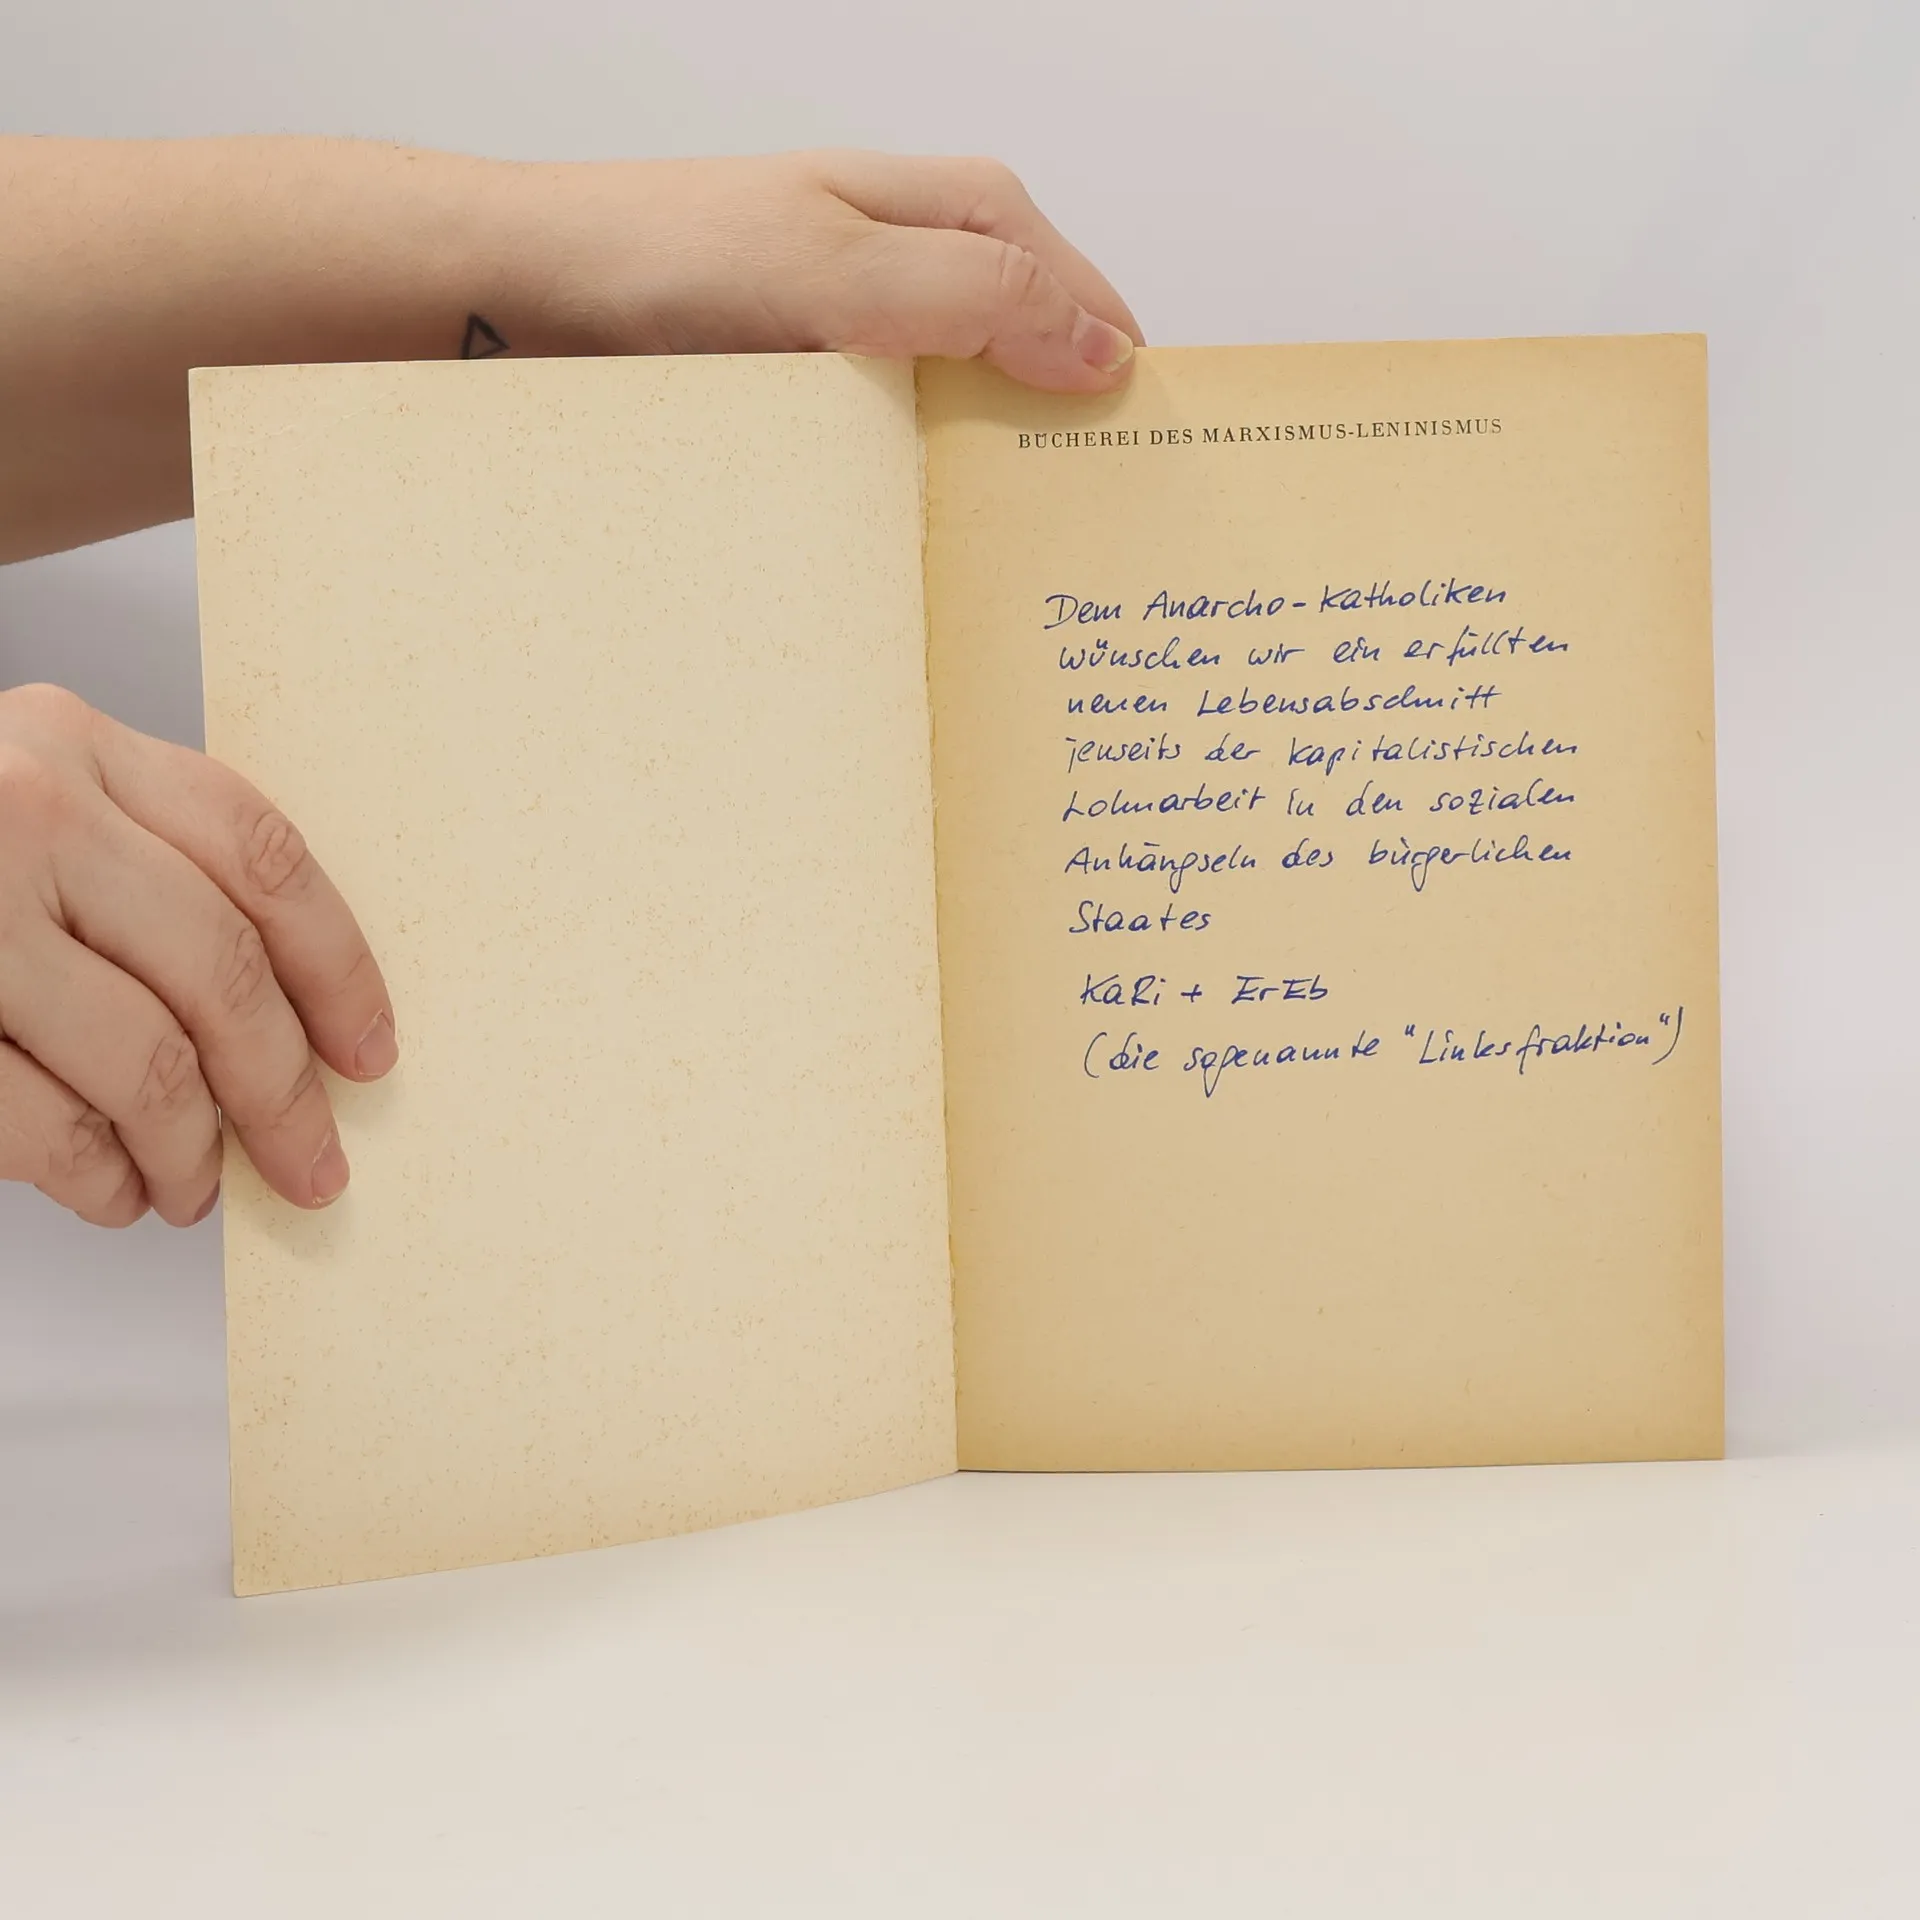 BÜCHEREI DES MARXISMUS-LENINISMUS
Dem Anarcho-Katholiken
wünschen wir ein erfüllten
neuen Lebensabschnitt
jenseits der kapitalistischen
Lohnarbeit in den sozialen
Anhängseln des bürgerlichen
Staates
KaRi + ErEb
(die sogenannte "Linksfraktion")